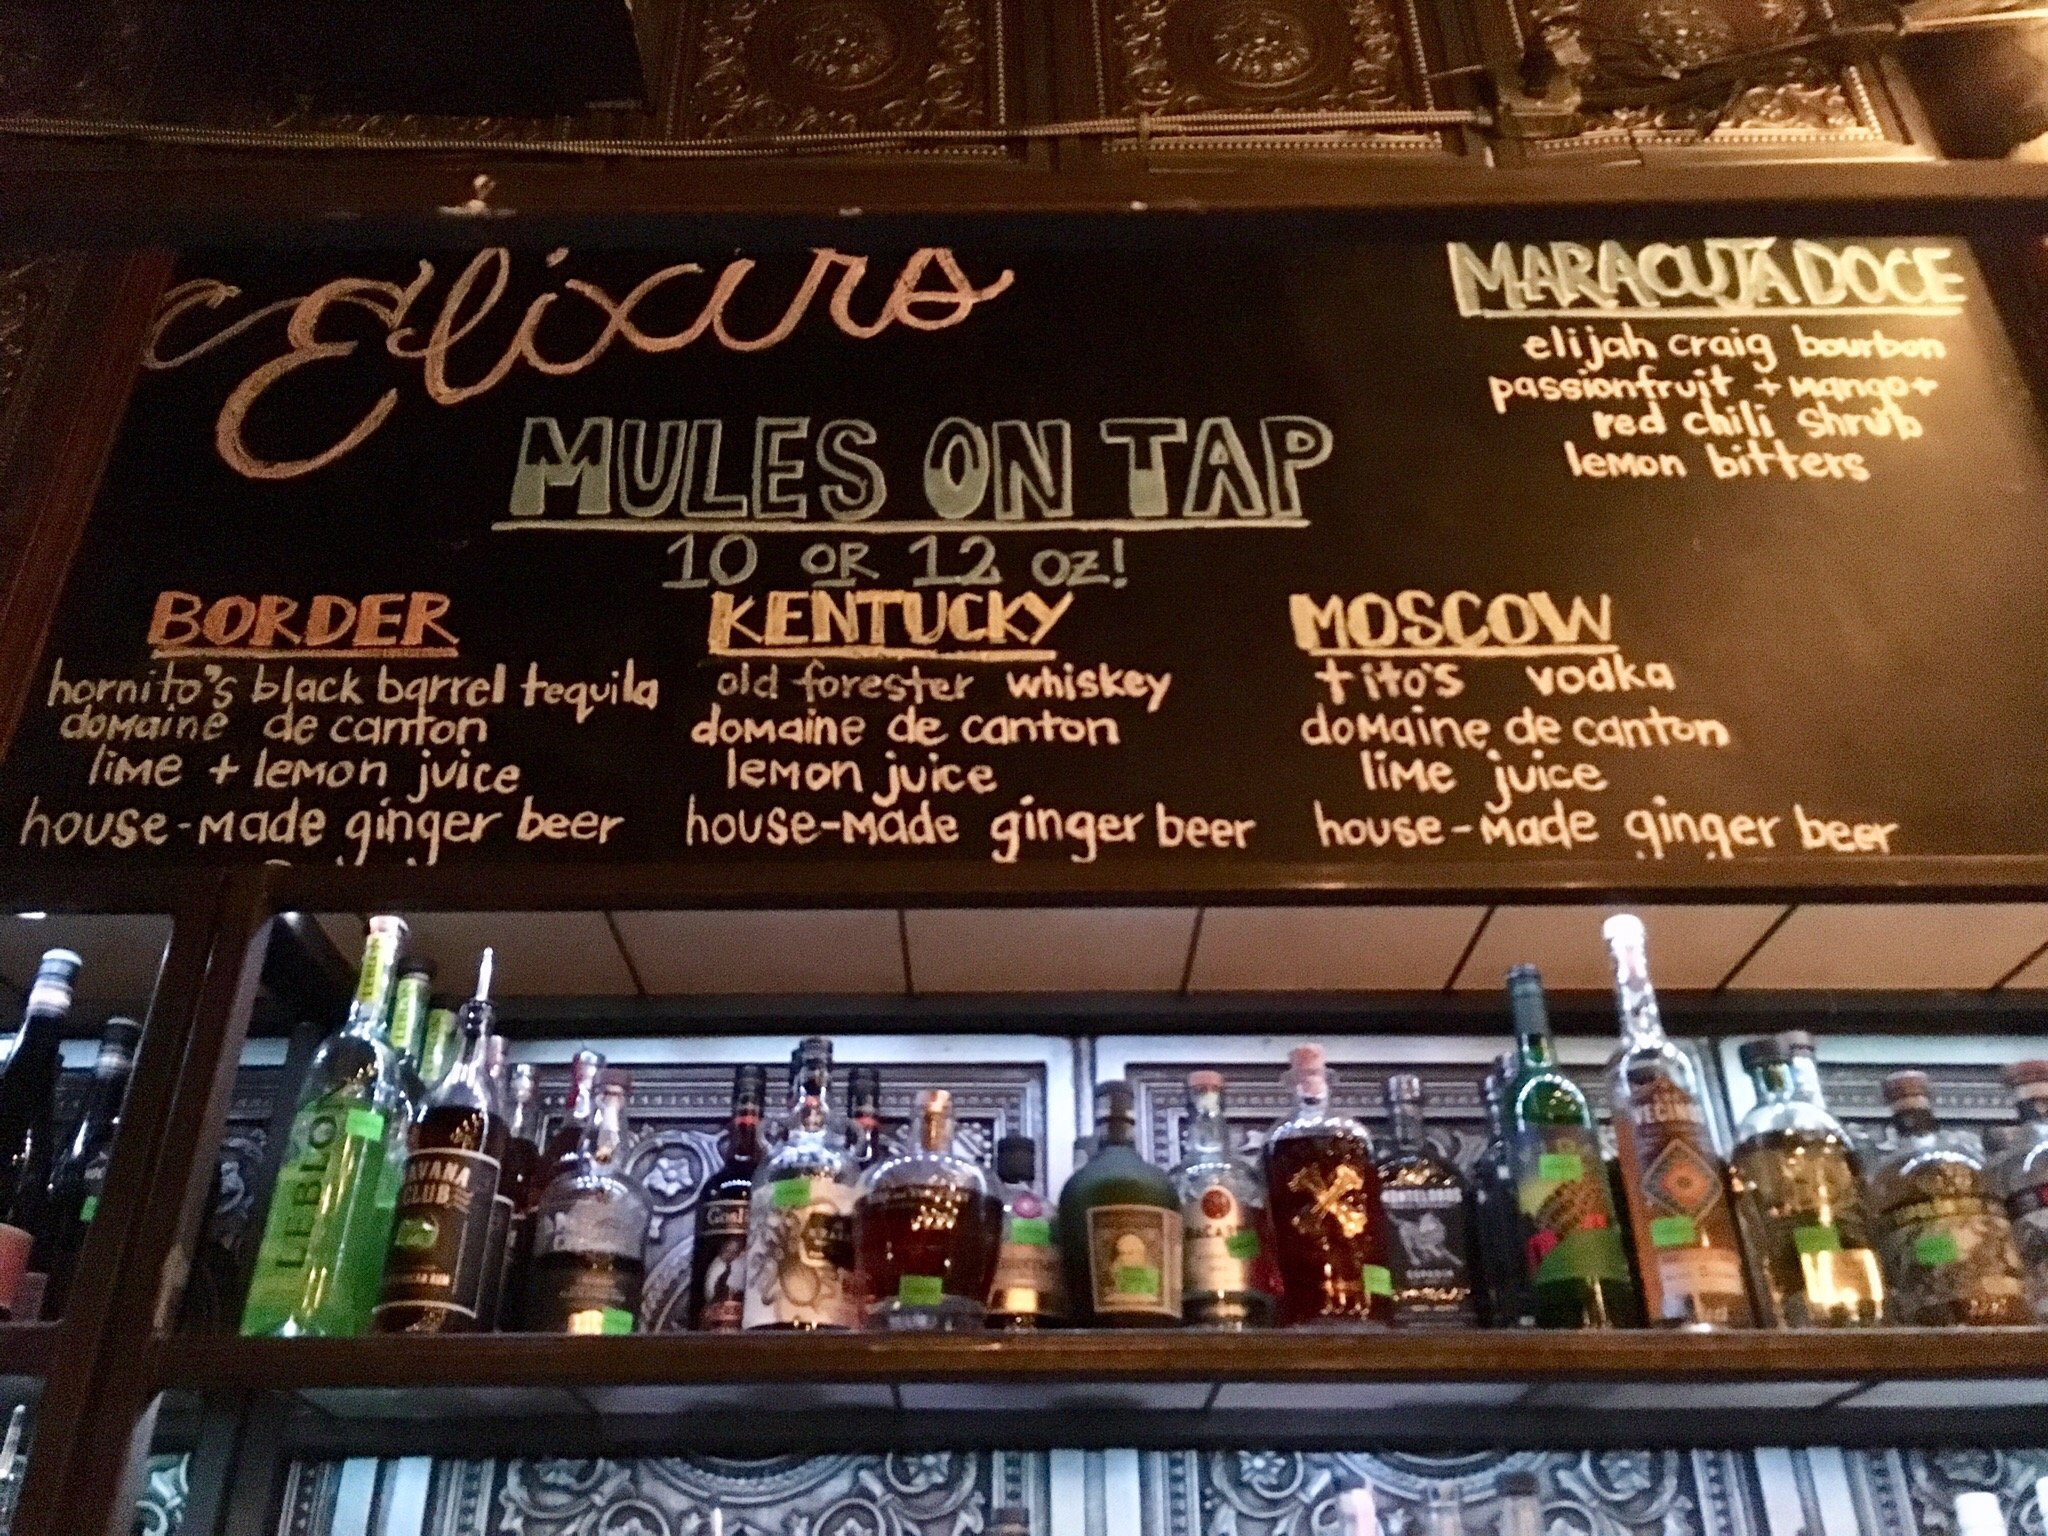 Elixirs
MULES ON TAP
10 OR 12 oz!
BORDER
hornito's black barrel tequila
domaine de canton
lime + lemon juice
house-made ginger beer
KENTUCKY
old forester whiskey
domaine de canton
lemon juice
house-made ginger beer
MOSCOW
tito's vodka
domaine de canton
lime juice
house-made ginger beer
MARACUJÁ DOCE
elijah craig bourbon
passionfruit + mango +
red chili shrub
lemon bitters
LEBLON
HAVANA
CLUB